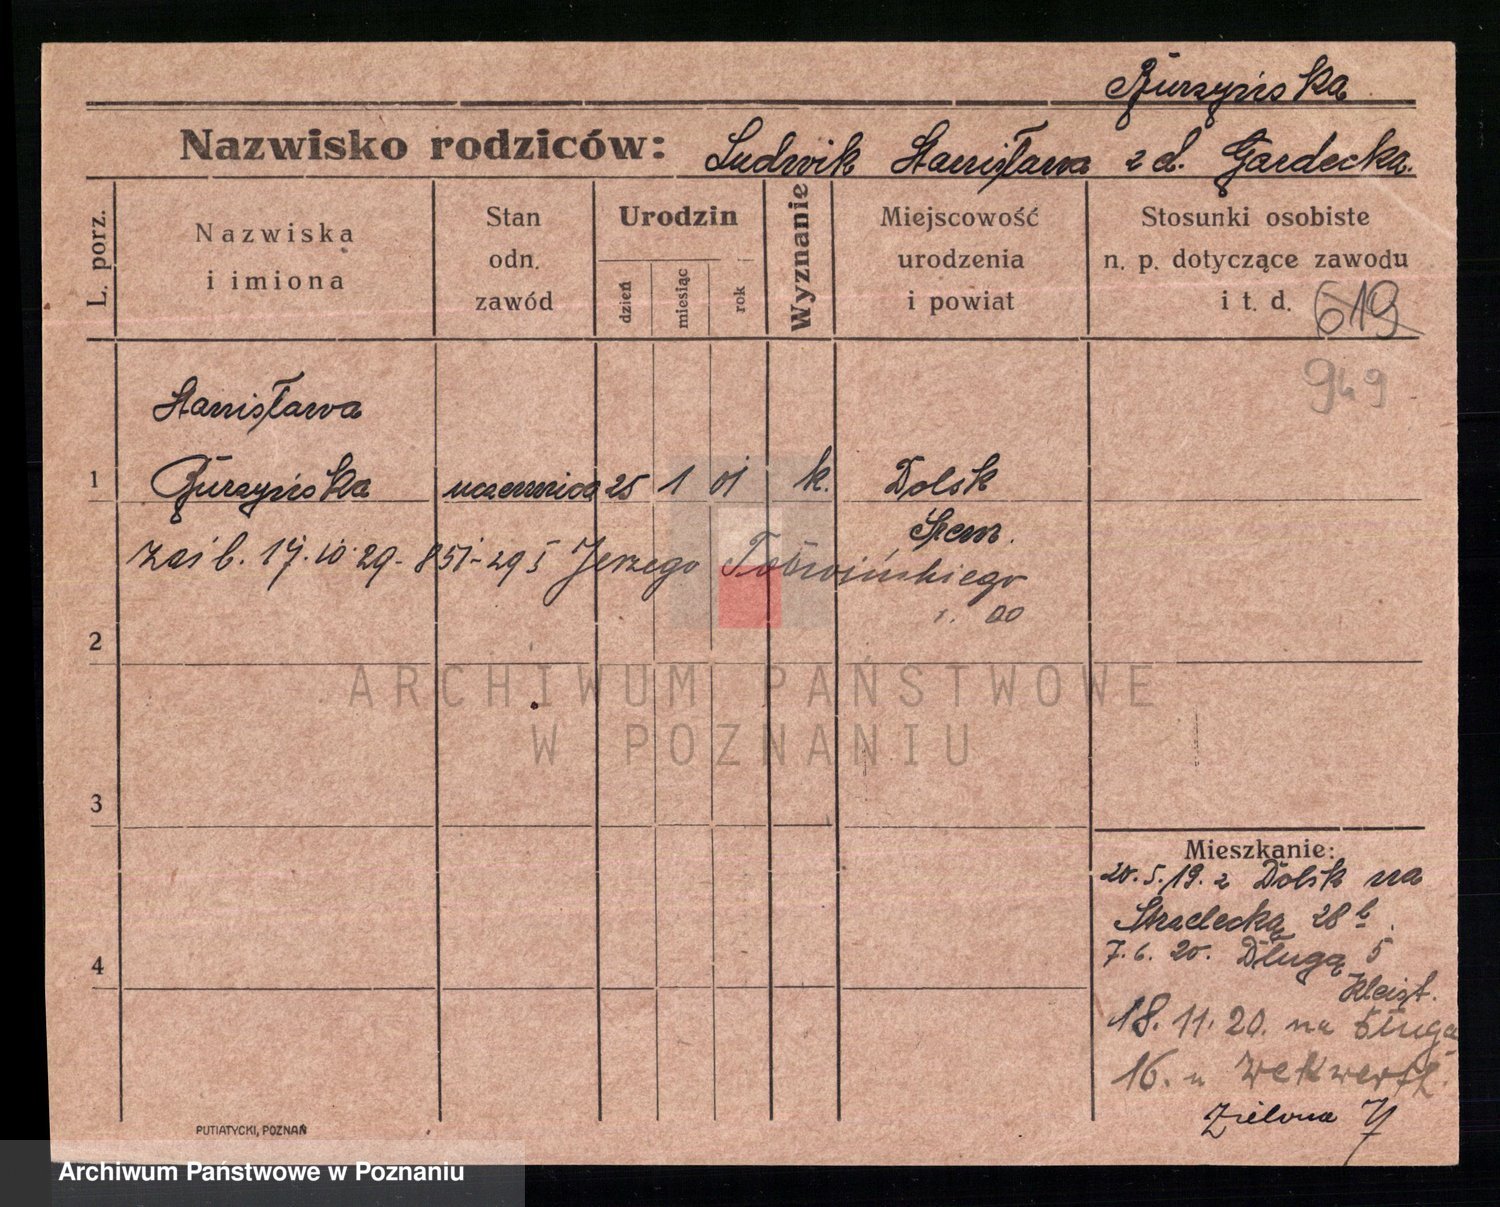 Burzyńska
Nazwisko rodziców: Ludwik Stanisława z d. Gardecka.
L. porz.
Nazwiska
i imiona
Stan
odn.
zawód
Urodzin
dzień
miesiąc
rok
Wyznanie
Miejscowość
urodzenia
i powiat
Stosunki osobiste
n. p. dotyczące zawodu
i t. d. 619
949
Stanisława
1 Burzyńska uczennica 25 1 01 k. Dolsk
Śrem.
zaśl. 17.10.29 - 851-29 Jerzego
2
3
4
ARCHIWUM PAŃSTWOWE
W POZNANIU
Mieszkanie:
20.5.19. z Dolsk na
Strzelecką 28 b.
7.6.20. Długą 5
Kleist.
18.11.20. na Długą
16. u
Zielona 7
PUTIATYCKI, POZNAŃ
Archiwum Państwowe w Poznaniu